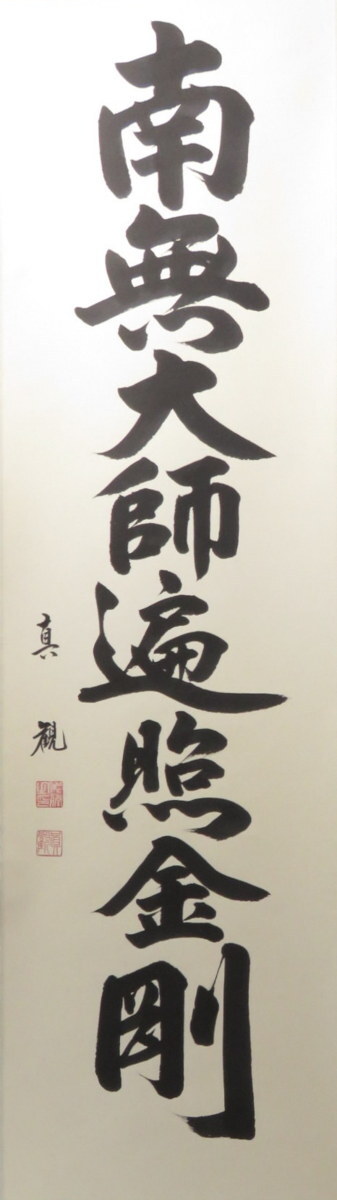 南無大師遍照金剛
真観